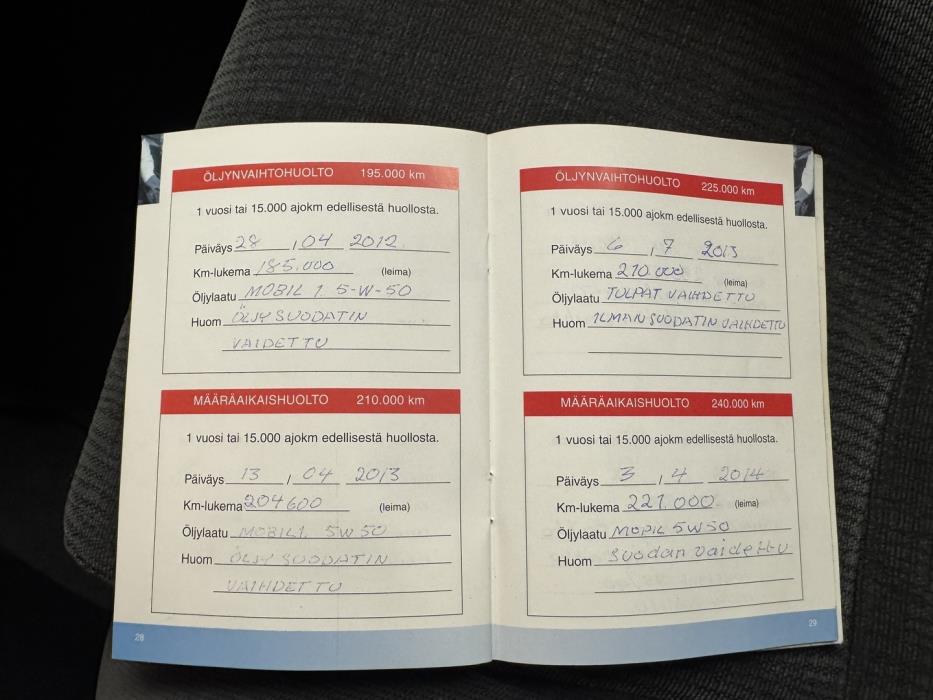 ÖLJYNVAIHTOHUOLTO 195.000 km
1 vuosi tai 15.000 ajokm edellisestä huollosta.
Päiväys 28 , 04 2012
Km-lukema 185.000 (leima)
Öljylaatu MOBIL 1 5-W-50
Huom ÖLJYSUODATIN
VAIDETTU
MÄÄRÄAIKAISHUOLTO 210.000 km
1 vuosi tai 15.000 ajokm edellisestä huollosta.
Päiväys 13 , 04 2013
Km-lukema 204600 (leima)
Öljylaatu MOBIL1 5W50
Huom ÖLJYSUODATIN
VAIHDETTU
28
ÖLJYNVAIHTOHUOLTO 225.000 km
1 vuosi tai 15.000 ajokm edellisestä huollosta.
Päiväys 6 , 7 2013
Km-lukema 210.000 (leima)
Öljylaatu TULPAT VAIHDETTU
Huom ILMANSUODATIN VAIHDETTU
MÄÄRÄAIKAISHUOLTO 240.000 km
1 vuosi tai 15.000 ajokm edellisestä huollosta.
Päiväys 3 , 4 2014
Km-lukema 221.000 (leima)
Öljylaatu MOPIL 5W50
Huom Suodan vaidettu
29